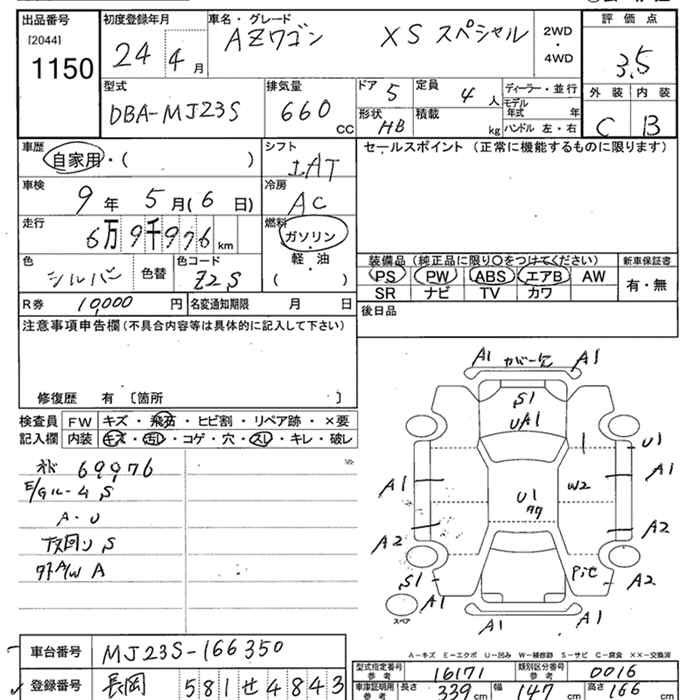 出品番号 初度登録年月 車名・グレード 2WD・4WD 評価点
[2044] 1150 24年4月 AZワゴン XSスペシャル 3.5
型式 排気量 ドア 5 定員 4人 ディーラー・並行 外装 内装
DBA-MJ23S 660 CC 形状 HB 積載 kg モデル年式 年 ハンドル 左・右 C B
車歴 自家用・( ) シフト IAT セールスポイント (正常に機能するものに限ります)
車検 9年5月(6日) 冷房 AC
走行 6万9千976km 燃料 ガソリン 軽・油 ( )
色 シルバー 色替 色コード Z2S
装備品 (純正品に限り〇をつけてください) 新車保証書
PS PW ABS エアB AW 有・無
SR ナビ TV カワ
R券 10,000円 名変通知期限 月 日 後日品
注意事項申告欄 (不具合内容等は具体的に記入して下さい)
修復歴 有 〔箇所 〕
検査員記入欄 FW キズ・飛石・ヒビ割・リペア跡・×要
内装 キズ・汚レ・コゲ・穴・スレ・キレ・破レ
69976
E/gルーム S
A・U
下回り S
A/W A
A1 A1
S1
UA1
U1
A1 A1
W2
U1
A2 A2
S1 Pit A2
A1 A1
U1
スペア
A-キズ E-エクボ U-凹み W-補修跡 S-サビ C-腐食 ××-交換済
車台番号 MJ23S-166350
型式指定番号 参考 16171 類別区分番号 参考 0016
登録番号 長岡 581 せ 4843
車庫証明用 参考 長さ 339cm 幅 147cm 高さ 166cm